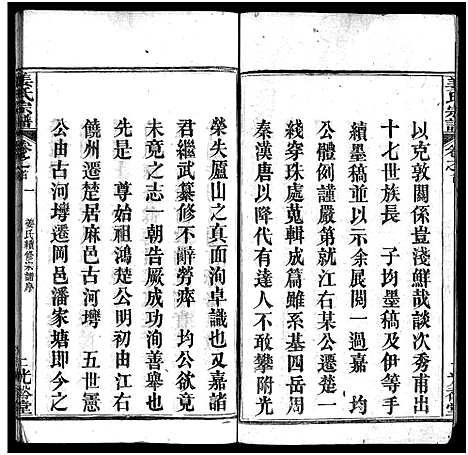 姜氏宗譜
卷之首
以克敦關係豈淺鮮哉談次秀甫出
十七世族長 子均墨稿及伊等手
續墨稿並以示余展閱一過嘉 均
公體例謹嚴第就江右某公遷楚一
綫穿珠處蒐輯成篇雖系基四岳周
秦漢唐以降代有達人而不敢攀附光
榮失廬山之真面洵卓識也又嘉諸
君繼武纂修不辭勞瘁 均公欲竟
未竟之志一朝告厥成功洵善舉也
先是 尊始祖鴻楚公明初由江右
饒州遷楚居麻邑古河塆 五世憲
公由古河塆遷岡邑潘家塘即今之
姜氏宗譜
卷之首
一
姜氏續修宗譜序
光裕堂